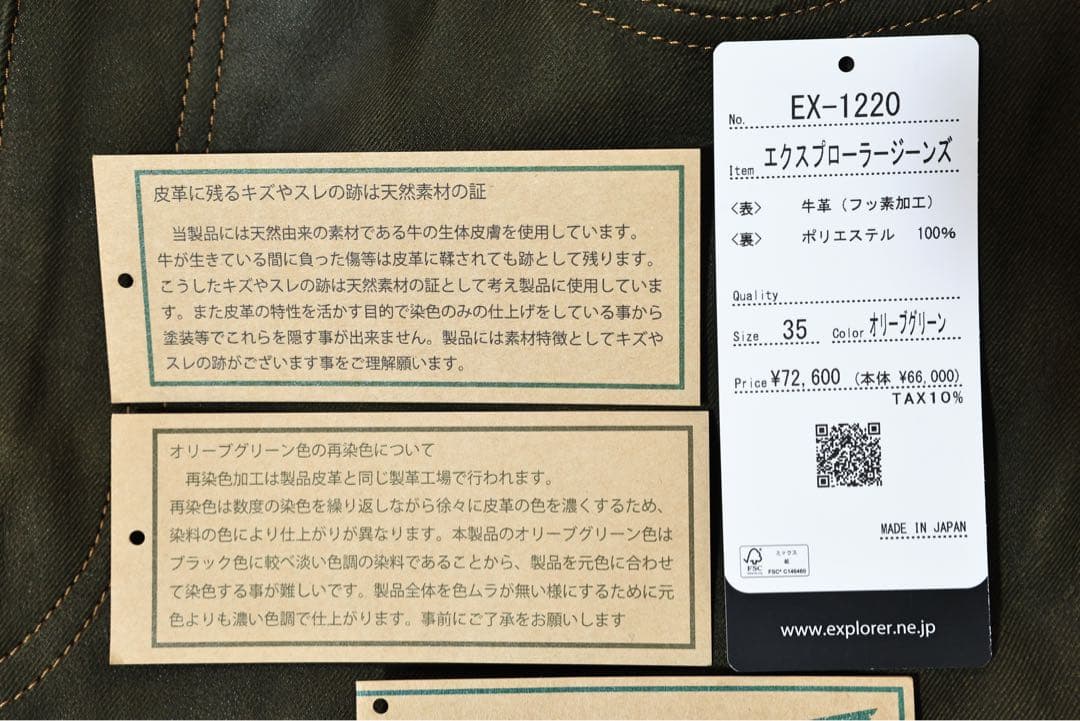 皮革に残るキズやスレの跡は天然素材の証
当製品には天然由来の素材である牛の生体皮膚を使用しています。
牛が生きている間に負った傷等は皮革に鞣されても跡として残ります。
こうしたキズやスレの跡は天然素材の証として考え製品に使用していま
す。また皮革の特性を活かす目的で染色のみの仕上げをしている事から
塗装等でこれらを隠す事が出来ません。製品には素材特徴としてキズや
スレの跡がございます事をご理解願います。
オリーブグリーン色の再染色について
再染色加工は製品皮革と同じ製革工場で行われます。
再染色は数度の染色を繰り返しながら徐々に皮革の色を濃くするため、
染料の色により仕上がりが異なります。本製品のオリーブグリーン色は
ブラック色に較べ淡い色調の染料であることから、製品を元色に合わせ
て染色する事が難しいです。製品全体を色ムラが無い様にするために元
色よりも濃い色調で仕上がります。事前にご了承をお願いします
No. EX-1220
Item エクスプローラージーンズ
〈表〉 牛革（フッ素加工）
〈裏〉 ポリエステル 100%
Quality
Size 35 Color オリーブグリーン
Price ¥72,600 (本体 ¥66,000)
TAX10%
MADE IN JAPAN
ミックス
紙
FSC
FSC® C146460
www.explorer.ne.jp